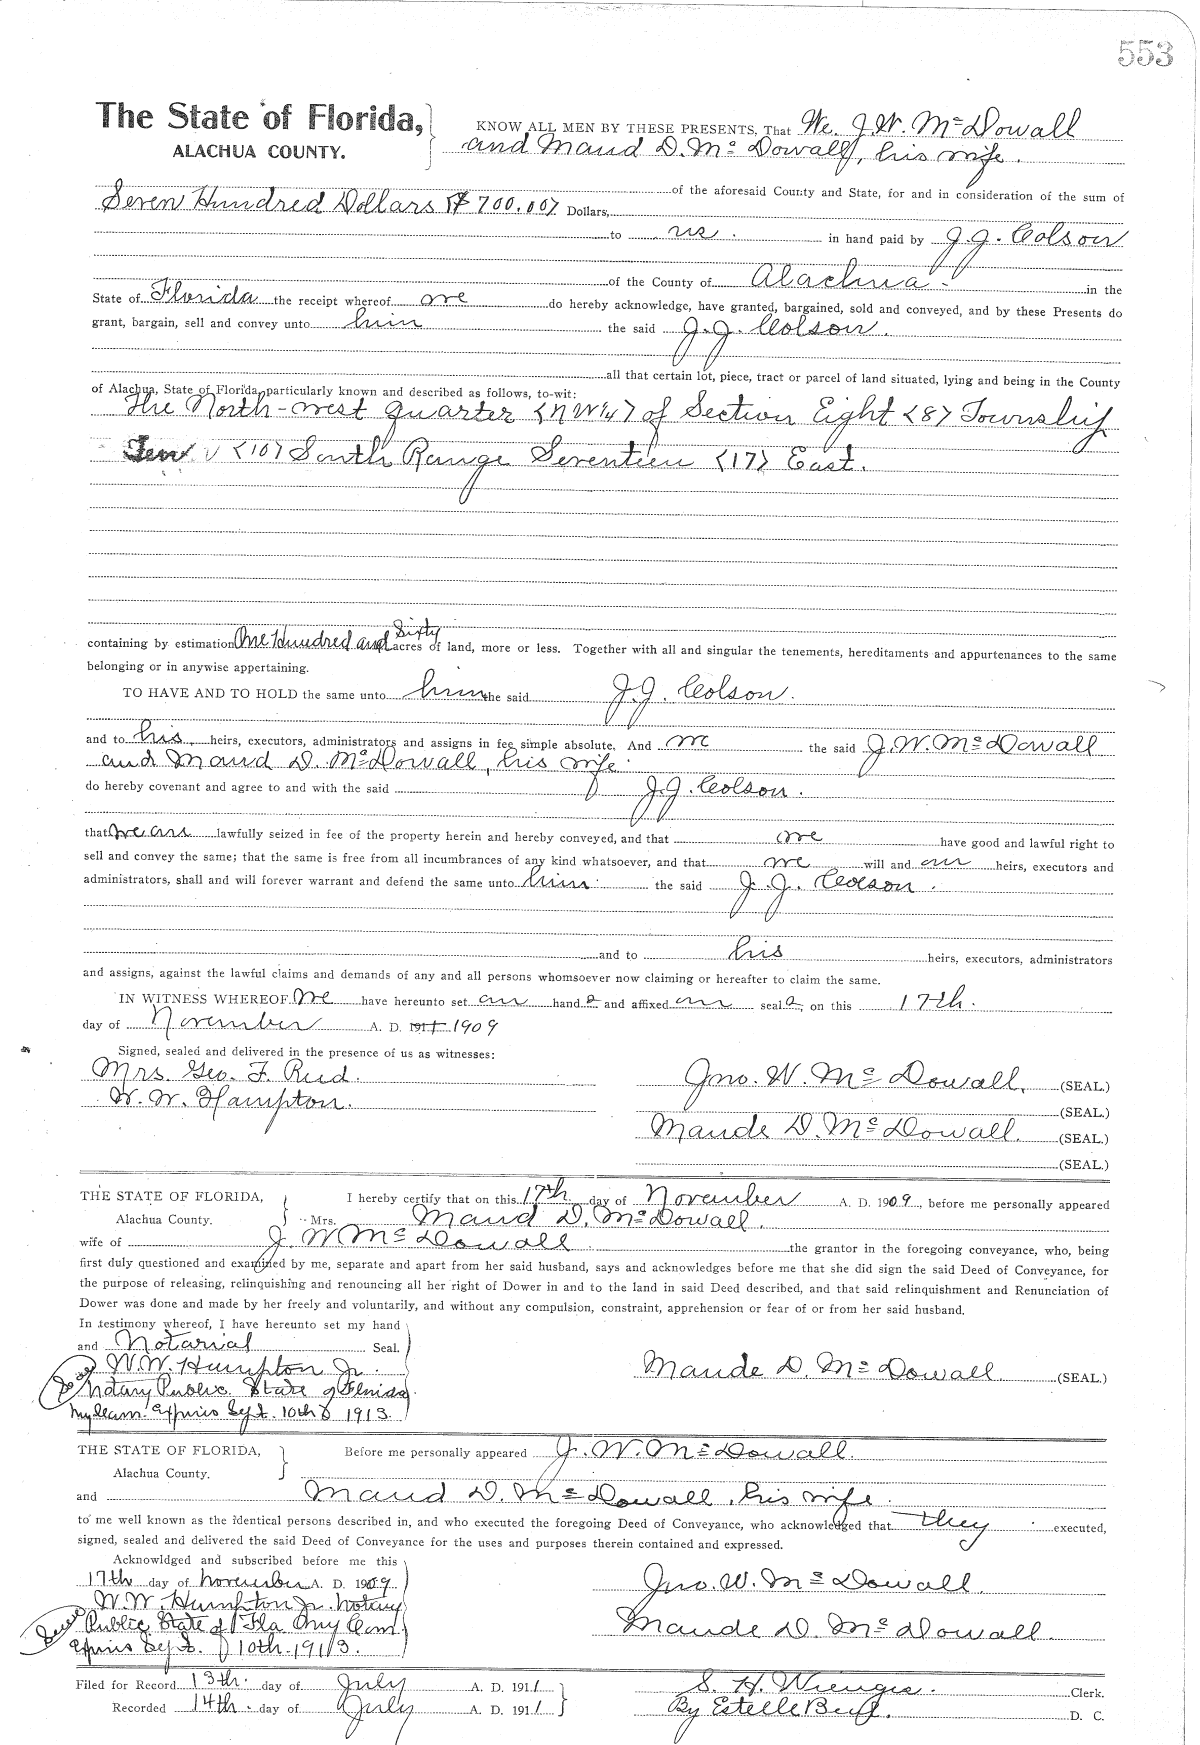 553
The State of Florida, KNOW ALL MEN BY THESE PRESENTS, That We. J.W. McDowall
ALACHUA COUNTY. and Maud D. McDowall, his wife.
of the aforesaid County and State, for and in consideration of the sum of
Seven Hundred Dollars ($700.00) Dollars,
to us. in hand paid by J.J. Colson
of the County of Alachua. in the
State of Florida the receipt whereof we do hereby acknowledge, have granted, bargained, sold and conveyed, and by these Presents do
grant, bargain, sell and convey unto him the said J.J. Colson.
all that certain lot, piece, tract or parcel of land situated, lying and being in the County
of Alachua, State of Florida, particularly known and described as follows, to-wit:
The North-west quarter <NW¼> of Section Eight <8> Township
Ten <10> South Range Seventeen <17> East.
containing by estimation One Hundred and Sixty acres of land, more or less. Together with all and singular the tenements, hereditaments and appurtenances to the same
belonging or in anywise appertaining.
TO HAVE AND TO HOLD the same unto him the said J.J. Colson.
and to his heirs, executors, administrators and assigns in fee simple absolute. And we the said J.W. McDowall
and Maud D. McDowall, his wife.
do hereby covenant and agree to and with the said J.J. Colson.
that we are lawfully seized in fee of the property herein and hereby conveyed, and that we have good and lawful right to
sell and convey the same; that the same is free from all incumbrances of any kind whatsoever, and that we will and our heirs, executors and
administrators, shall and will forever warrant and defend the same unto him the said J.J. Colson.
and to his heirs, executors, administrators
and assigns, against the lawful claims and demands of any and all persons whomsoever now claiming or hereafter to claim the same.
IN WITNESS WHEREOF, We have hereunto set our hands and affixed our seals, on this 17th.
day of November A. D. 191 1909
Signed, sealed and delivered in the presence of us as witnesses:
Mrs. Geo. F. Reid. Jno. W. McDowall. (SEAL.)
W.W. Hampton. (SEAL.)
Maude D. McDowall. (SEAL.)
(SEAL.)
THE STATE OF FLORIDA, I hereby certify that on this 17th. day of November A. D. 1909., before me personally appeared
Alachua County. Mrs. Maud D. McDowall.
wife of J. W McDowall the grantor in the foregoing conveyance, who, being
first duly questioned and examined by me, separate and apart from her said husband, says and acknowledges before me that she did sign the said Deed of Conveyance, for
the purpose of releasing, relinquishing and renouncing all her right of Dower in and to the land in said Deed described, and that said relinquishment and Renunciation of
Dower was done and made by her freely and voluntarily, and without any compulsion, constraint, apprehension or fear of or from her said husband.
In testimony whereof, I have hereunto set my hand
and Notarial Seal.
W.W. Hampton Jr. Maude D. McDowall. (SEAL.)
Notary Public State of Florida
My Com. Expires Sept. 10th 1913.
THE STATE OF FLORIDA, Before me personally appeared J. W. McDowall.
Alachua County.
and Maud D. McDowall, his wife.
to me well known as the identical persons described in, and who executed the foregoing Deed of Conveyance, who acknowledged that they executed,
signed, sealed and delivered the said Deed of Conveyance for the uses and purposes therein contained and expressed.
Acknowldged and subscribed before me this
17th day of November A. D. 1909. Jno. W. McDowall.
W.W. Hampton Jr. Notary
Seal Public State of Fla My Com. Maude D. McDowall.
Expires Sept. 10th. 1913.
Filed for Record 13th. day of July A. D. 1911 S. H. Wienges. Clerk.
Recorded 14th. day of July A. D. 1911 By Estelle D. C.